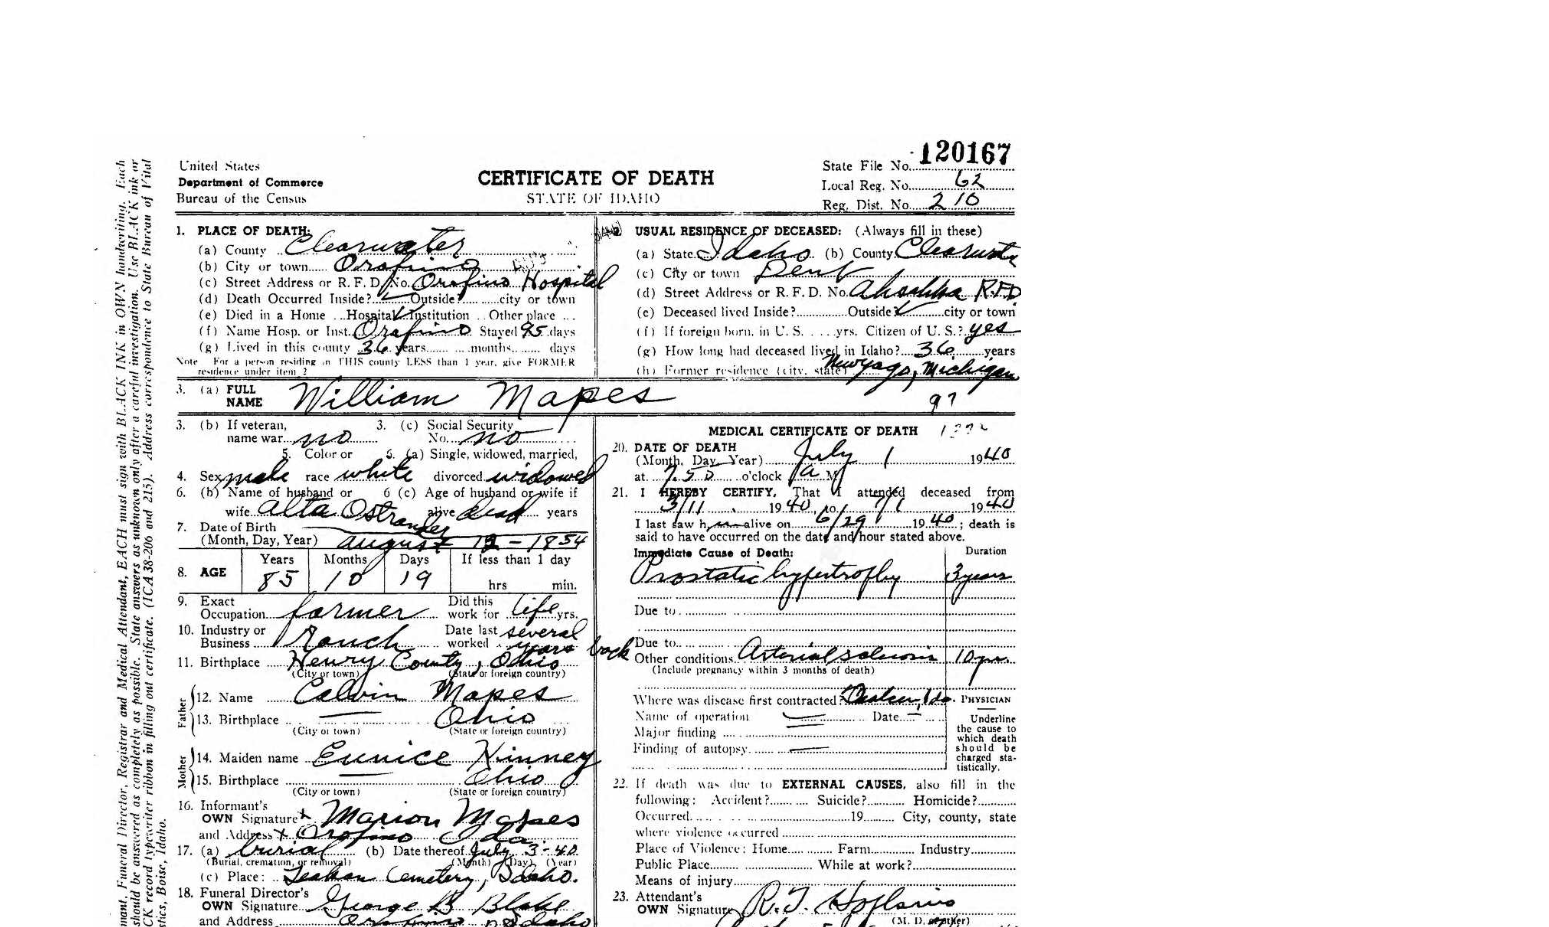 120167
United States
State File No.
Department of Commerce
CERTIFICATE OF DEATH
Local Reg. No. 62
Bureau of the Census
STATE OF IDAHO
Reg. Dist. No. 210
1. PLACE OF DEATH:
(a) County Clearwater
(b) City or town Orofino
(c) Street Address or R. F. D. No. Orofino Hospital
(d) Death Occurred Inside? Outside? city or town
(e) Died in a Home Hospital Institution Other place
(f) Name Hosp. or Inst. Orofino Stayed 95 days
(g) Lived in this county 36 years months days
Note For a person residing in THIS county LESS than 1 year, give FORMER
residence under item 2
2. USUAL RESIDENCE OF DECEASED: (Always fill in these)
(a) State Idaho (b) County
(c) City or town Dent
(d) Street Address or R. F. D. No. Ahsahka RFD
(e) Deceased lived Inside? Outside city or town
(f) If foreign born, in U. S. yrs. Citizen of U. S.? yes
(g) How long had deceased lived in Idaho? 36 years
(h) Former residence (city, state) Michigan
3. (a) FULL
NAME William Mapes
97
3. (b) If veteran,
name war no
3. (c) Social Security
No. no
5. Color or
6. (a) Single, widowed, married,
4. Sex male race white divorced widowed
6. (b) Name of husband or 6 (c) Age of husband or wife if
wife Alta Ostrander alive dead years
7. Date of Birth
(Month, Day, Year) August 12 - 1854
8. AGE Years Months Days If less than 1 day
85 10 19 hrs min.
9. Exact
Occupation farmer
Did this
work for life yrs.
10. Industry or
Business Ranch
Date last several
worked years back
11. Birthplace Henry County, Ohio
(City or town) (State or foreign country)
Father
12. Name Calvin Mapes
13. Birthplace Ohio
(City or town) (State or foreign country)
Mother
14. Maiden name Eunice Kinney
15. Birthplace Ohio
(City or town) (State or foreign country)
16. Informant's
OWN Signature x Marion Mapes
and Address x Orofino Ida
17. (a) burial (b) Date thereof July 3-40
(Burial, cremation, or removal) (Month) (Day) (Year)
(c) Place: Teakan Cemetery, Idaho.
18. Funeral Director's
OWN Signature George B Blake
and Address Orofino Idaho
MEDICAL CERTIFICATE OF DEATH
20. DATE OF DEATH
(Month, Day, Year) July 1 1940
at 7.50 o'clock a M
21. I HEREBY CERTIFY, That I attended deceased from
3/11 1940, to 7/1 1940
I last saw h alive on 6/29 1940; death is
said to have occurred on the date and hour stated above.
Immediate Cause of Death: Duration
Prostatic hypertrophy 3 years
Due to
Due to
Other conditions Arterial sclerosis 10 yrs.
(Include pregnancy within 3 months of death)
Where was disease first contracted?
Name of operation Date
Major finding
Finding of autopsy
PHYSICIAN
Underline
the cause to
which death
should be
charged sta-
tistically.
22. If death was due to EXTERNAL CAUSES, also fill in the
following: Accident? Suicide? Homicide?
Occurred 19 City, county, state
where violence occurred
Place of Violence: Home Farm Industry
Public Place While at work?
Means of injury
23. Attendant's
OWN Signature
(M. D.